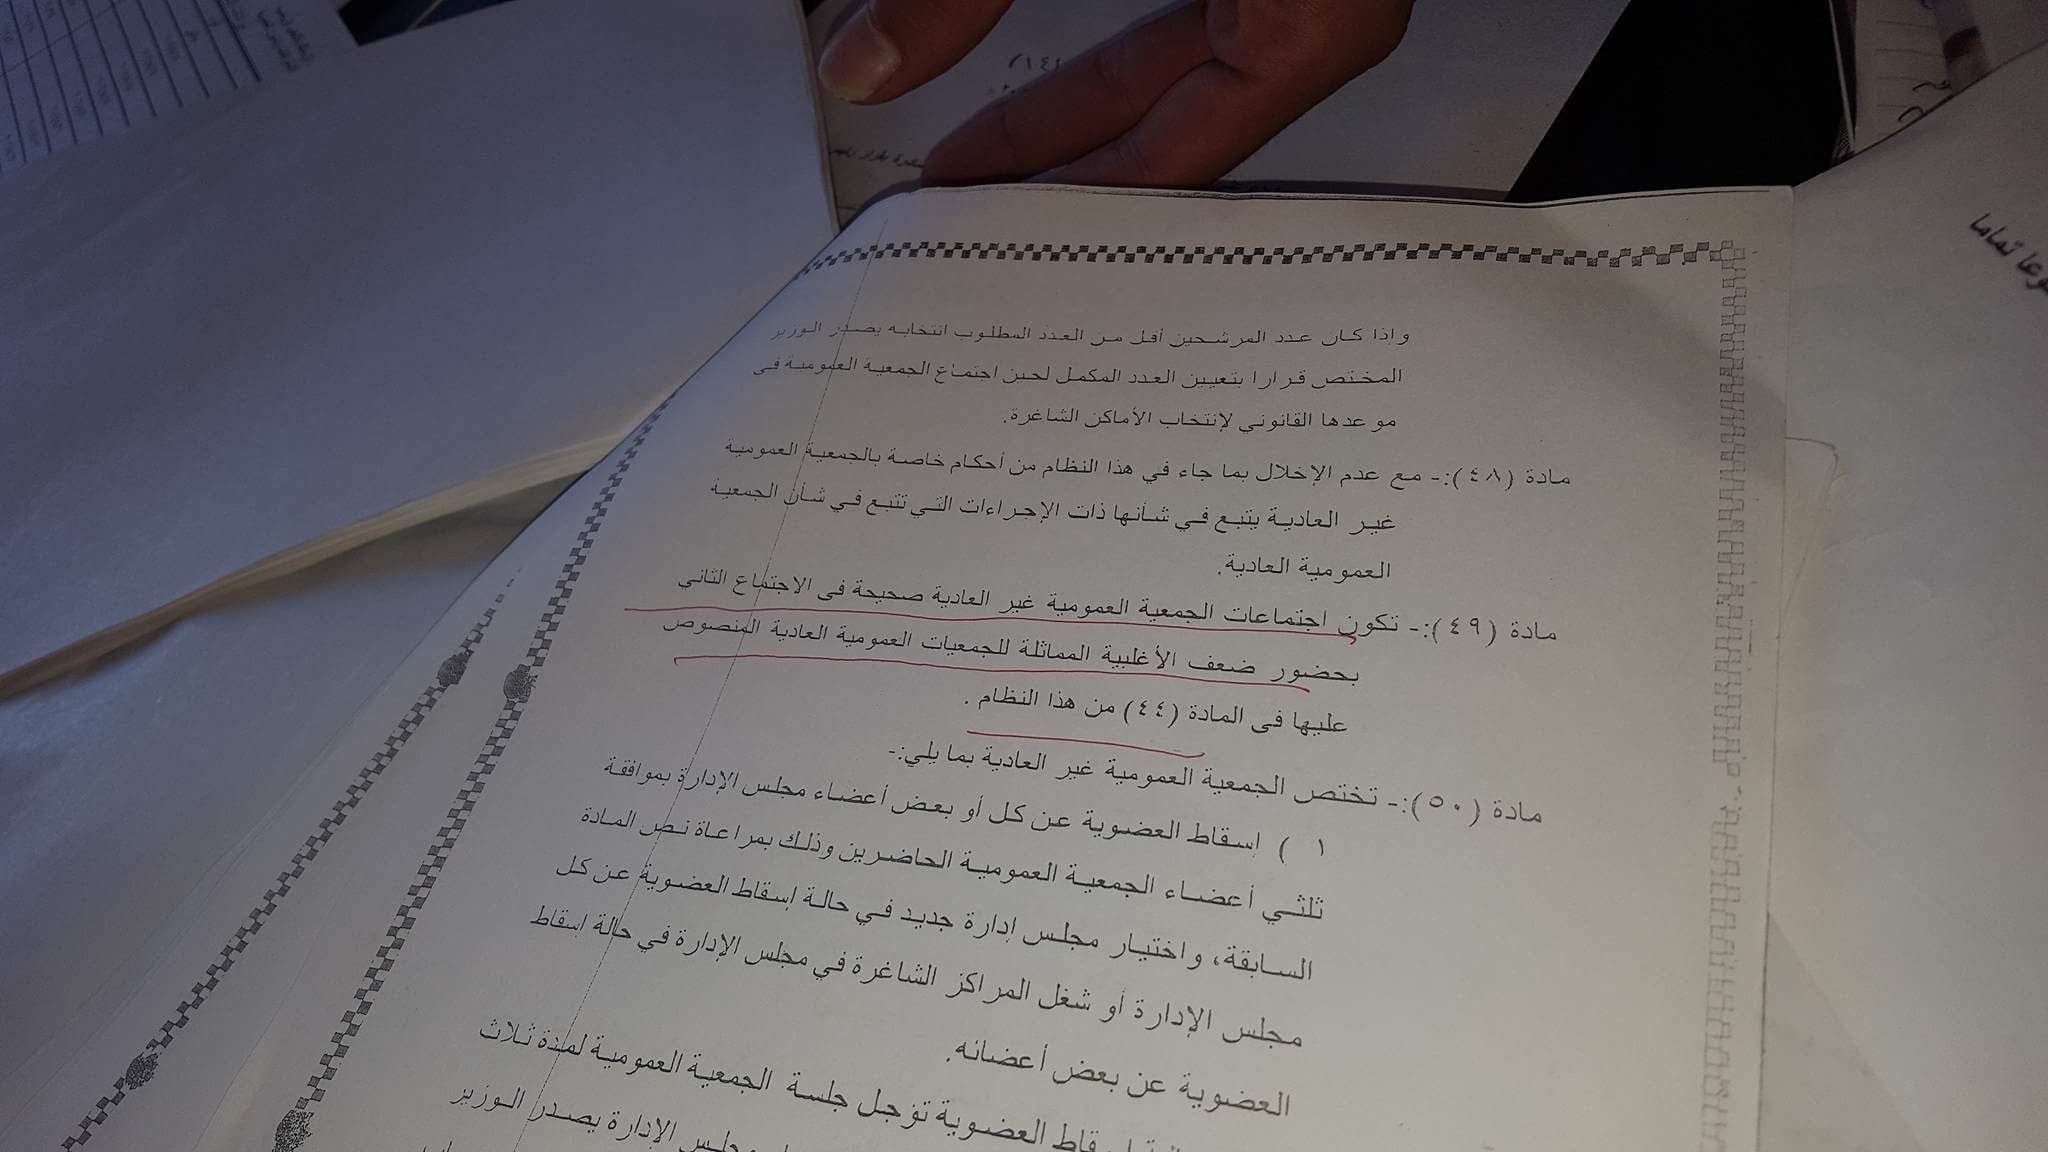 وإذا كان عدد المرشحين أقل من العدد المطلوب انتخابه يصدر الوزير
المختص قرارا بتعيين العدد المكمل لحين اجتماع الجمعية العمومية فى
موعدها القانوني لإنتخاب الأماكن الشاغرة.
مادة (٤٨):- مع عدم الإخلال بما جاء في هذا النظام من أحكام خاصة بالجمعية العمومية
غير العادية يتبع في شأنها ذات الإجراءات التي تتبع في شأن الجمعية
العمومية العادية.
مادة (٤٩):- تكون اجتماعات الجمعية العمومية غير العادية صحيحة فى الاجتماع الثاني
بحضور ضعف الأغلبية المماثلة للجمعيات العمومية العادية المنصوص
عليها فى المادة (٤٤) من هذا النظام .
مادة (٥٠):- تختص الجمعية العمومية غير العادية بما يلي:-
١ ) إسقاط العضوية عن كل أو بعض أعضاء مجلس الإدارة بموافقة
ثلثي أعضاء الجمعية العمومية الحاضرين وذلك بمراعاة نص المادة
السابقة، واختيار مجلس إدارة جديد في حالة إسقاط العضوية عن كل
مجلس الإدارة أو شغل المراكز الشاغرة في مجلس الإدارة في حالة إسقاط
العضوية عن بعض أعضائه.
العضوية تؤجل جلسة الجمعية العمومية لمدة ثلاث
مجلس الإدارة يصدر الوزير
تماما